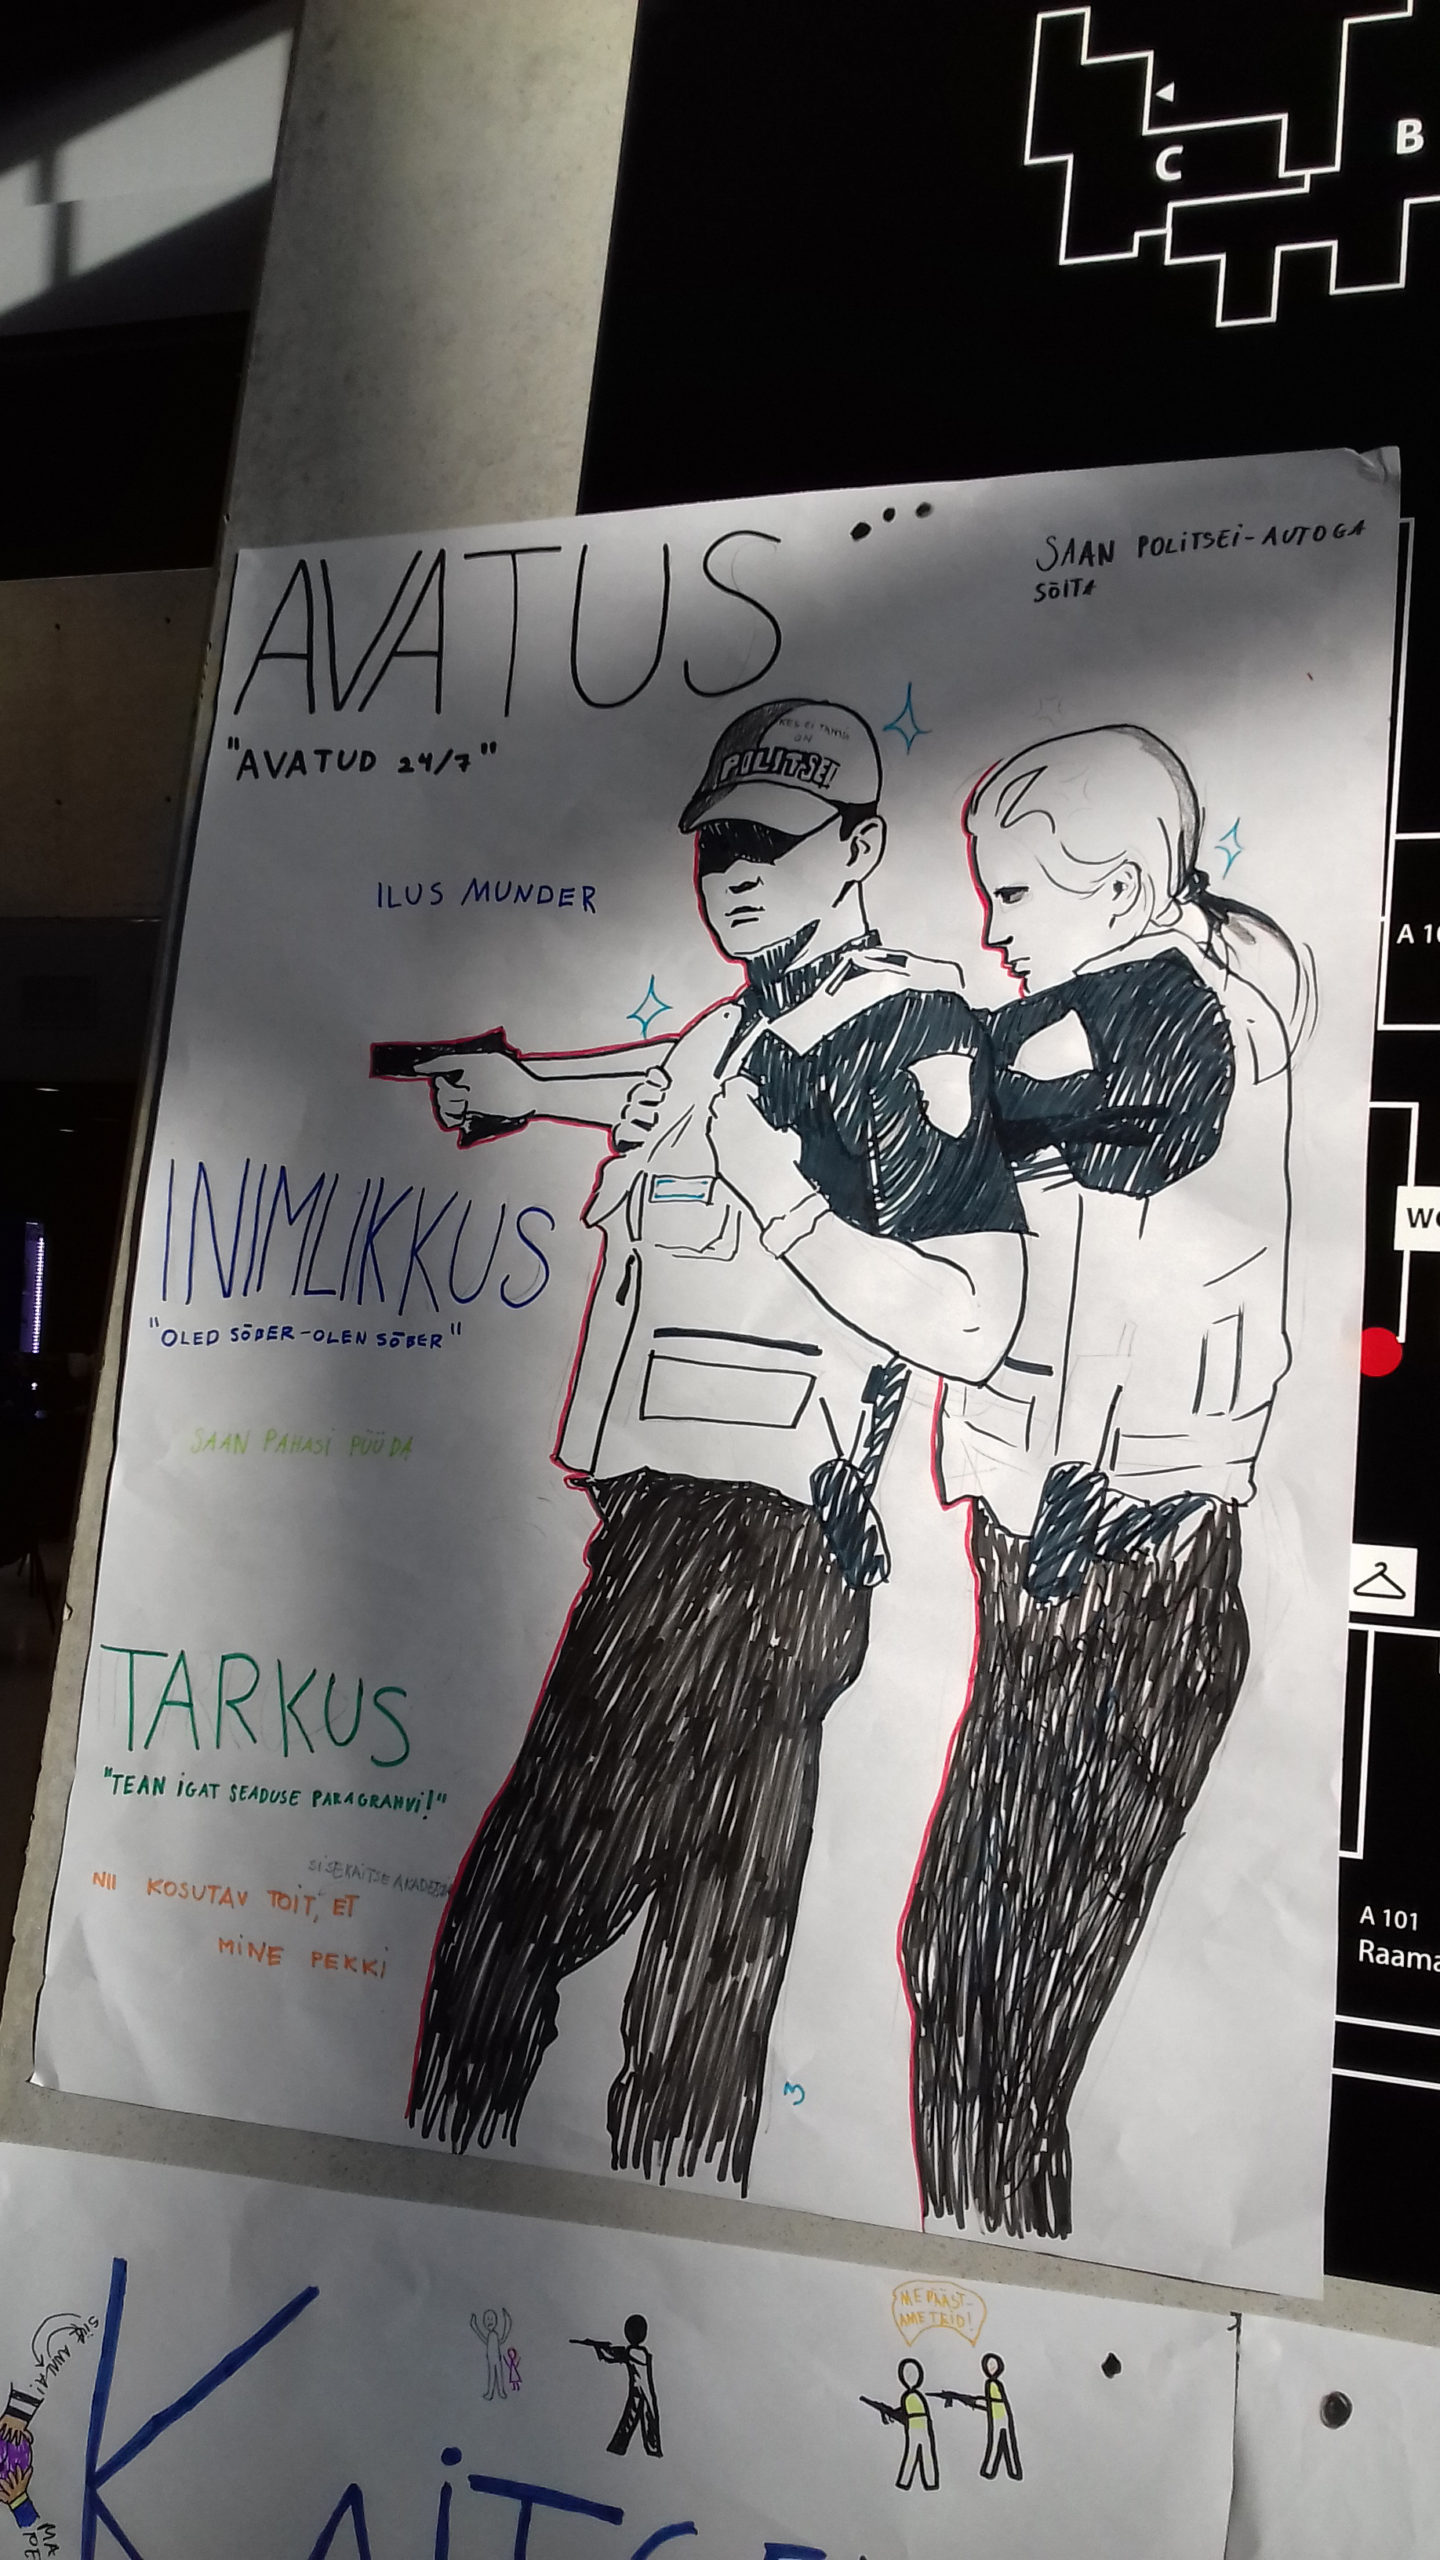 C
B
AVATUS
SAAN POLITSEI-AUTOGA
SÕITA
"AVATUD 24/7"
POLITSEI
ILUS MUNDER
A 10
INIMLIKKUS
"OLED SÕBER-OLEN SÕBER"
SAAN PAHASI PÜÜDA
TARKUS
"TEAN IGAT SEADUSE PARAGRAHVI!"
SISEKAITSEAKADEEMIA
NII KOSUTAV TOIT, ET
MINE PEKKI
A 101
Raama
ME PÄÄST-
AME TEID!
KAITSE